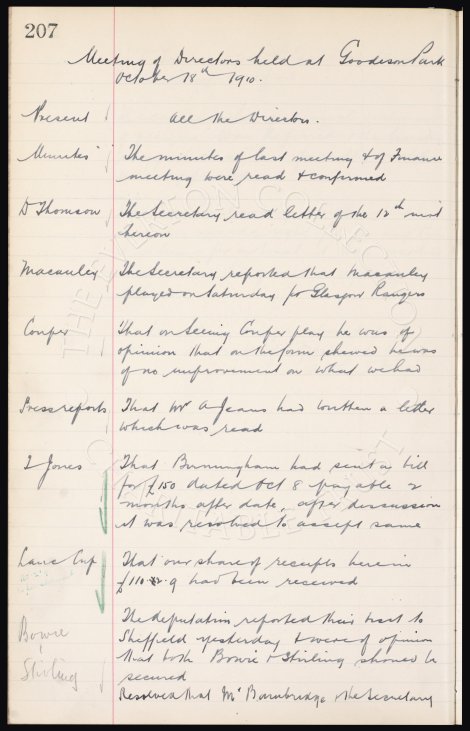 207
Meeting of Directors held at Goodison Park
October 18th 1910.
Present All the Directors.
Minutes The minutes of last meeting & of Finance
meeting were read & confirmed
D Thomson The Secretary read letter of the 12th inst
hereon
Macauley The Secretary reported that Macauley
played on Saturday for Glasgow Rangers
Couper That on seeing Couper play he was of
opinion that on the form shewed he was
of no improvement on what we had
Press reports That Mr A Jeans had written a letter
which was read
T Jones That Birmingham had sent a bill
for £150 dated Oct 8 payable 2
months after date, after discussion
it was resolved to accept same
Lanc Cup That our share of receipts herein
£110 9 had been received
The deputation reported their visit to
Sheffield yesterday & were of opinion
Bowie that both Bowie & Stirling should be
Stirling secured
Resolved that Mr Bainbridge & the Secretary
THE EVERTON COLLECTION